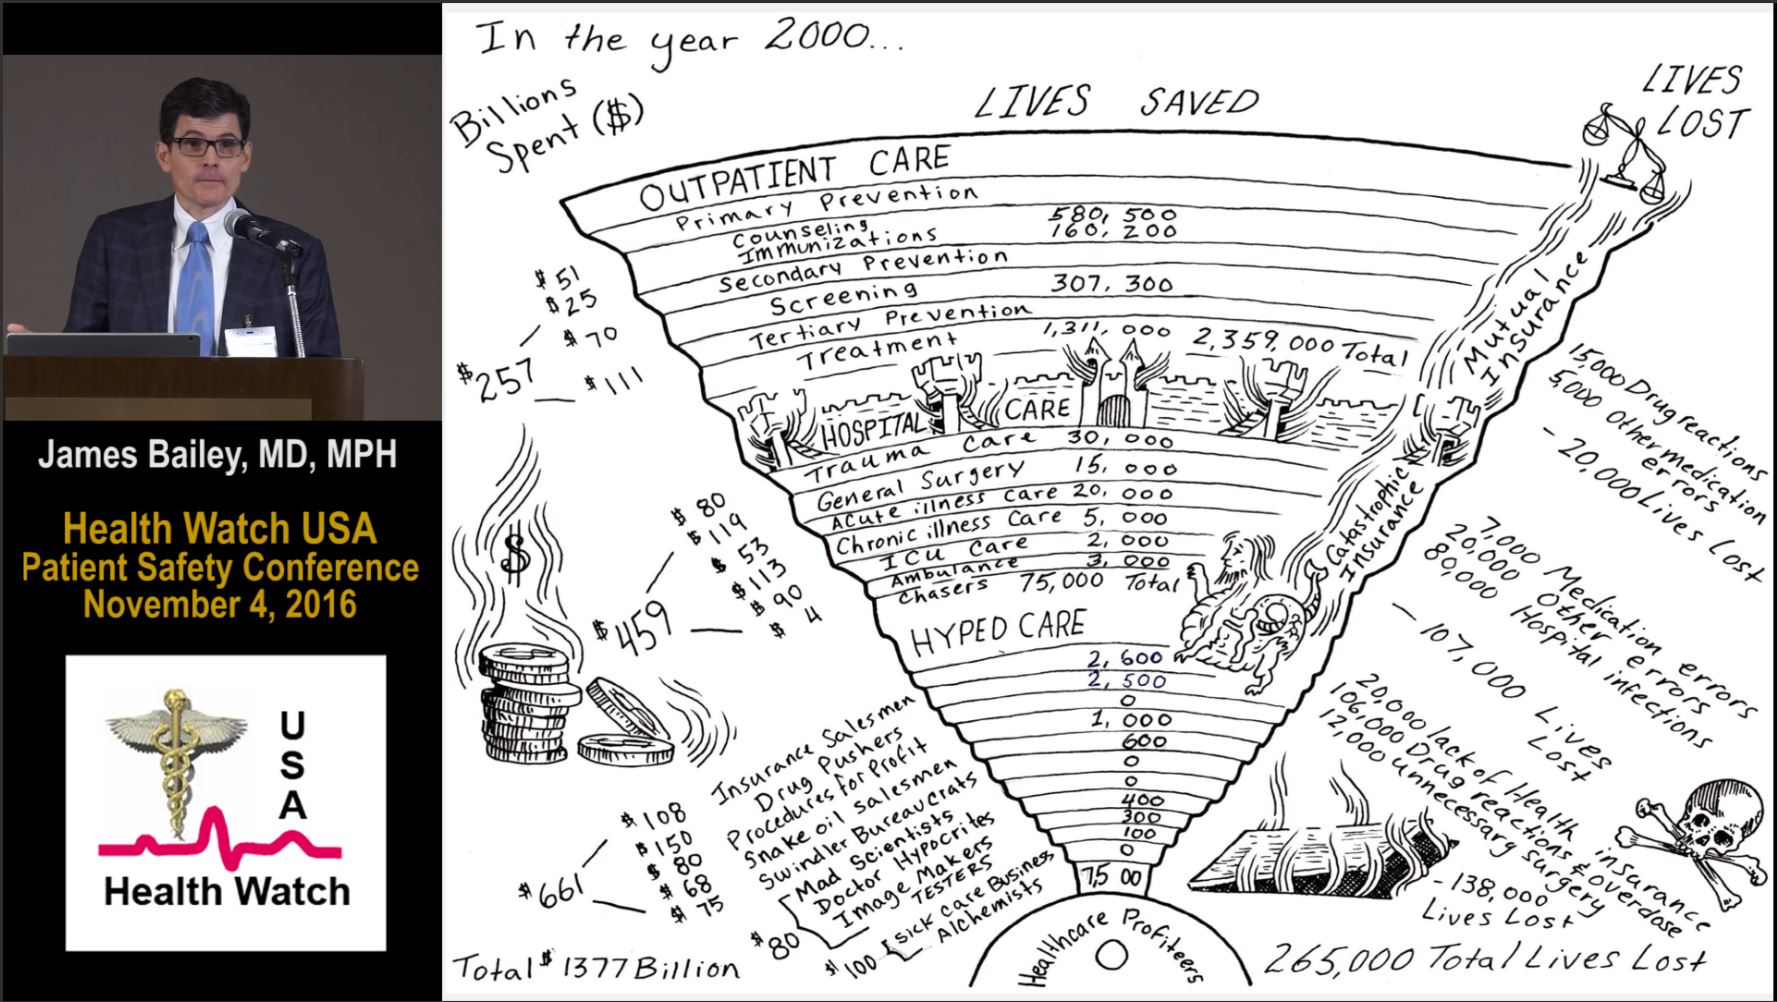 In the year 2000...
Billions
Spent ($)
LIVES SAVED
LIVES
LOST
OUTPATIENT CARE
Primary Prevention
Counseling 580,500
Immunizations 160,200
Secondary Prevention
Screening 307,300
Tertiary Prevention
Treatment 1,311,000 2,359,000 Total
$51
$25
$70
$257
$111
Mutual
Insurance
15,000 Drug reactions
5,000 Other medication
errors
- 20,000 Lives Lost
HOSPITAL CARE
Trauma Care 30,000
General Surgery 15,000
Acute illness Care 20,000
Chronic illness Care 5,000
ICU Care 2,000
Ambulance 3,000
Chasers 75,000 Total
$80
$119
$53
$113
$90
$4
$459
$
Catastrophic
Insurance
7,000 Medication errors
20,000 Other errors
80,000 Hospital infections
- 107,000 Lives
Lost
HYPED CARE
2,600
2,500
0
1,000
600
0
0
400
300
100
0
7,500
Insurance Salesmen
Drug Pushers
Procedures for Profit
Snake oil salesmen
Swindler Bureaucrats
Mad Scientists
Doctor Hypocrites
Image Makers
TESTERS
Sick Care Business
Alchemists
$108
$150
$80
$68
$75
$661
$80
$100
20,000 lack of Health insurance
106,000 Drug reactions & overdose
12,000 unnecessary surgery
- 138,000
Lives Lost
Healthcare Profiteers
Total $1377 Billion
265,000 Total Lives Lost
James Bailey, MD, MPH
Health Watch USA
Patient Safety Conference
November 4, 2016
USA
Health Watch